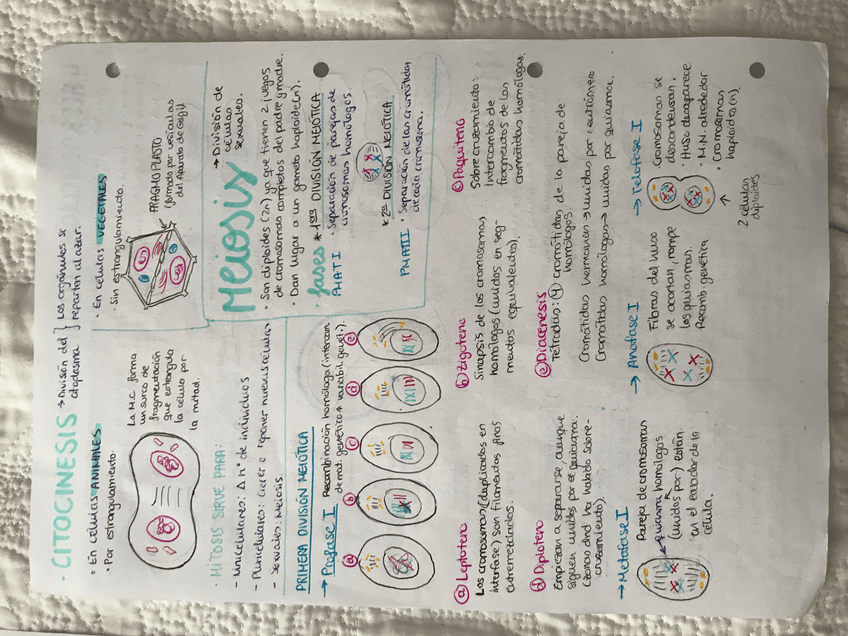 · CITOCINESIS → División del } Los orgánulos se
citoplasma } reparten al azar.
• En células ANIMALES
• Por estrangulamiento
La M.C forma
un surco de
fragmentación
que estrangula
la célula por
la mitad.
• En células VEGETALES
• Sin estrangulamiento.
FRAGMOPLASTO
(formado por vesículas
del Aparato de Golgi)
· MITOSIS SIRVE PARA:
- Unicelulares: Δ nº de individuos
- Pluricelulares: Crecer o reponer nuevas células
- Sexuales: Meiosis
Meiosis
→ División de
células
sexuales.
• Son diploides (2n) ya que tienen 2 juegos
de cromosomas completos del padre y madre.
• Dan lugar a un gameto haploide (n).
• fases * 1era DIVISIÓN MEIÓTICA
PMATI • Separación de parejas de
cromosomas homólogos.
* 2ª DIVISIÓN MEIÓTICA
PMATII • Separación de las cromátidas
de cada cromosoma.
PRIMERA DIVISIÓN MEIÓTICA
→ Profase I
Recombinación homóloga (intercam.
de mat. genético → variabil. genét.)
a b c d e
a) Leptoteno
Los cromosomas (duplicados en
interfase) son filamentos finos
entremezclados.
b) Zigoteno
Sinapsis de los cromosomas
homólogos (unidos en seg-
mentos equivalentes).
c) Paquiteno
Sobrecruzamiento:
Intercambio de
fragmentos de las
cromátidas homólogas.
d) Diploteno
Empiezan a separarse, aunque
siguen unidos por el quiasma.
(zonas dnd ha habido sobre-
cruzamiento).
e) Diacenesis
Tétradas: 4 cromátidas de la pareja de
homólogos.
Cromátidas hermanas → unidas por centrómero
Cromátidas homólogas → unidas por quiasma.
→ Metafase I
Pareja de cromosomas
homólogos
quiasma
(unidas por) están
en el ecuador de la
célula.
→ Anafase I
Fibras del huso
se acortan, rompe
los quiasmas.
Recomb. genética
→ Telofase I
• Cromosomas se
descondensan.
• Huso desaparece
• M.N. alrededor
• Cromosomas
haploides (n).
2 células
diploides